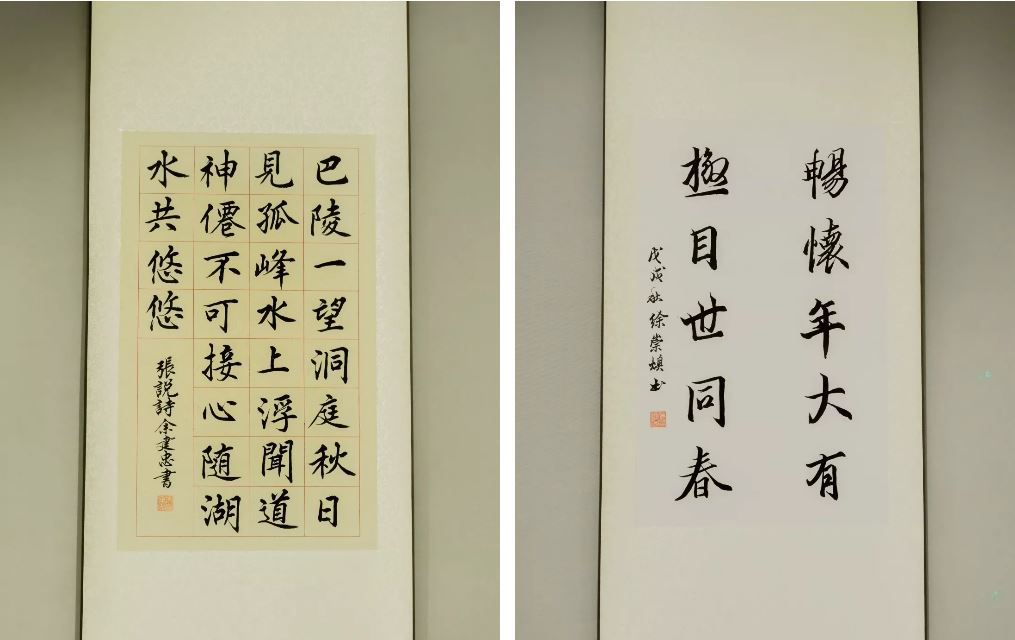 巴陵一望洞庭秋日
見孤峰水上浮聞道
神僊不可接心随湖
水共悠悠
張説詩余建忠書
暢懷年大有
極目世同春
戊戌秋徐崇嫫书